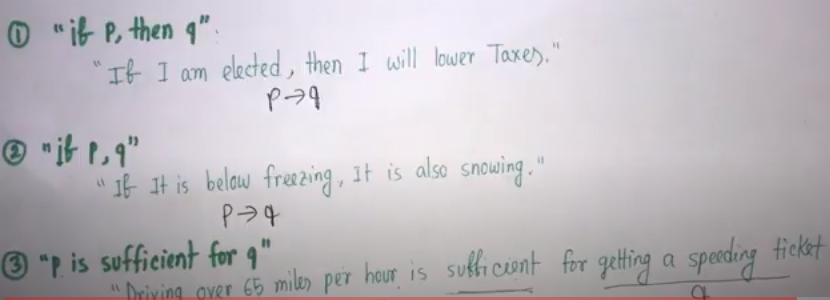 ① "if P, then q".
"If I am elected, then I will lower Taxes."
P→q
② "if P, q"
"If It is below freezing, It is also snowing."
P→q
③ "P is sufficient for q"
"Driving over 65 miles per hour is sufficient for getting a speeding ticket
q